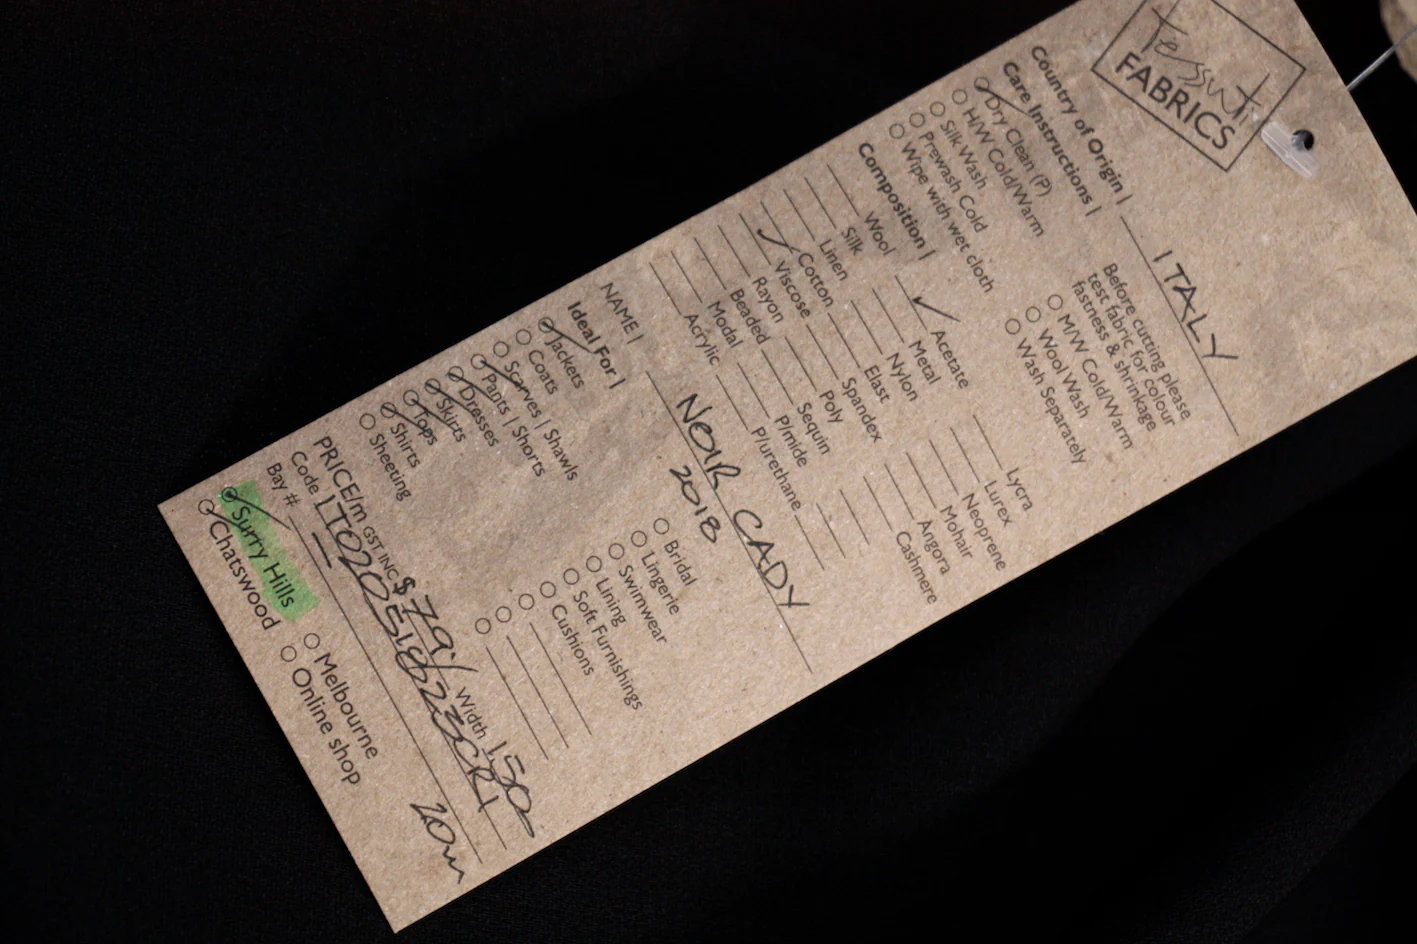 Tessuti
FABRICS
Country of Origin | ITALY
Care Instructions |
Dry Clean (P)
H/W Cold/Warm
Silk Wash
Prewash Cold
Wipe with wet cloth
Before cutting please
test fabric for colour
fastness & shrinkage
M/W Cold/Warm
Wool Wash
Wash Separately
Composition |
Wool
Silk
Linen
Cotton
Viscose
Rayon
Beaded
Modal
Acrylic
Acetate
Metal
Nylon
Elast
Spandex
Poly
Sequin
P/mide
P/urethane
Lycra
Lurex
Neoprene
Mohair
Angora
Cashmere
NAME | NOIR CADY
2018
Ideal For |
Jackets
Coats
Scarves | Shawls
Pants | Shorts
Dresses
Skirts
Tops
Shirts
Sheeting
Bridal
Lingerie
Swimwear
Lining
Soft Furnishings
Cushions
PRICE/m GST INC $79 Width 150
Code |
Bay # 20m
Surry Hills
Chatswood
Melbourne
Online shop